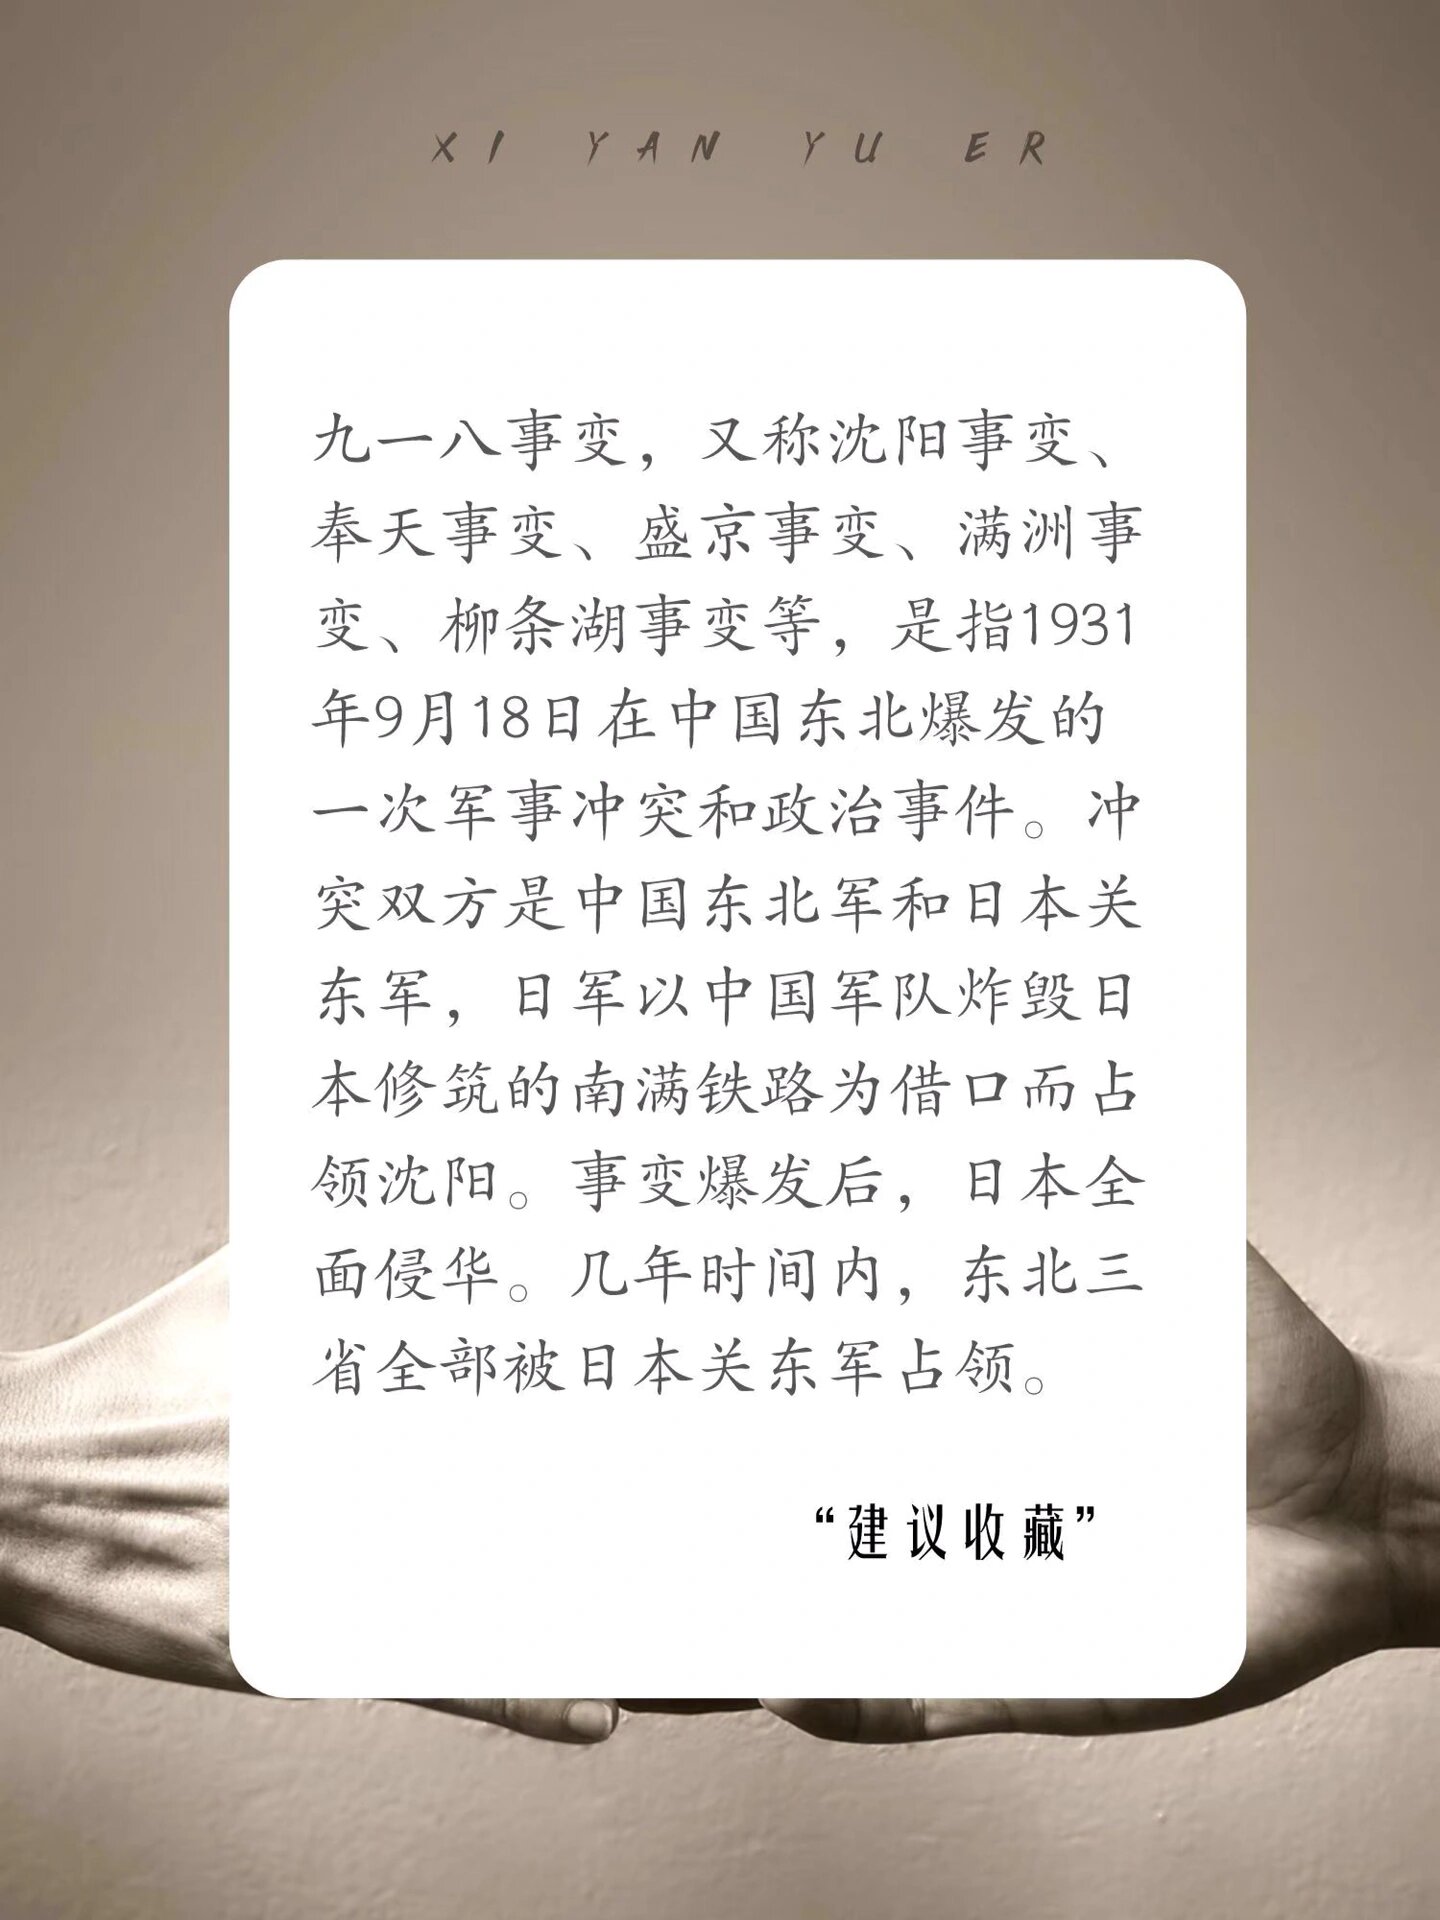 XI YAN YU ER
九一八事变，又称沈阳事变、
奉天事变、盛京事变、满洲事
变、柳条湖事变等，是指1931
年9月18日在中国东北爆发的
一次军事冲突和政治事件。冲
突双方是中国东北军和日本关
东军，日军以中国军队炸毁日
本修筑的南满铁路为借口而占
领沈阳。事变爆发后，日本全
面侵华。几年时间内，东北三
省全部被日本关东军占领。
“建议收藏”